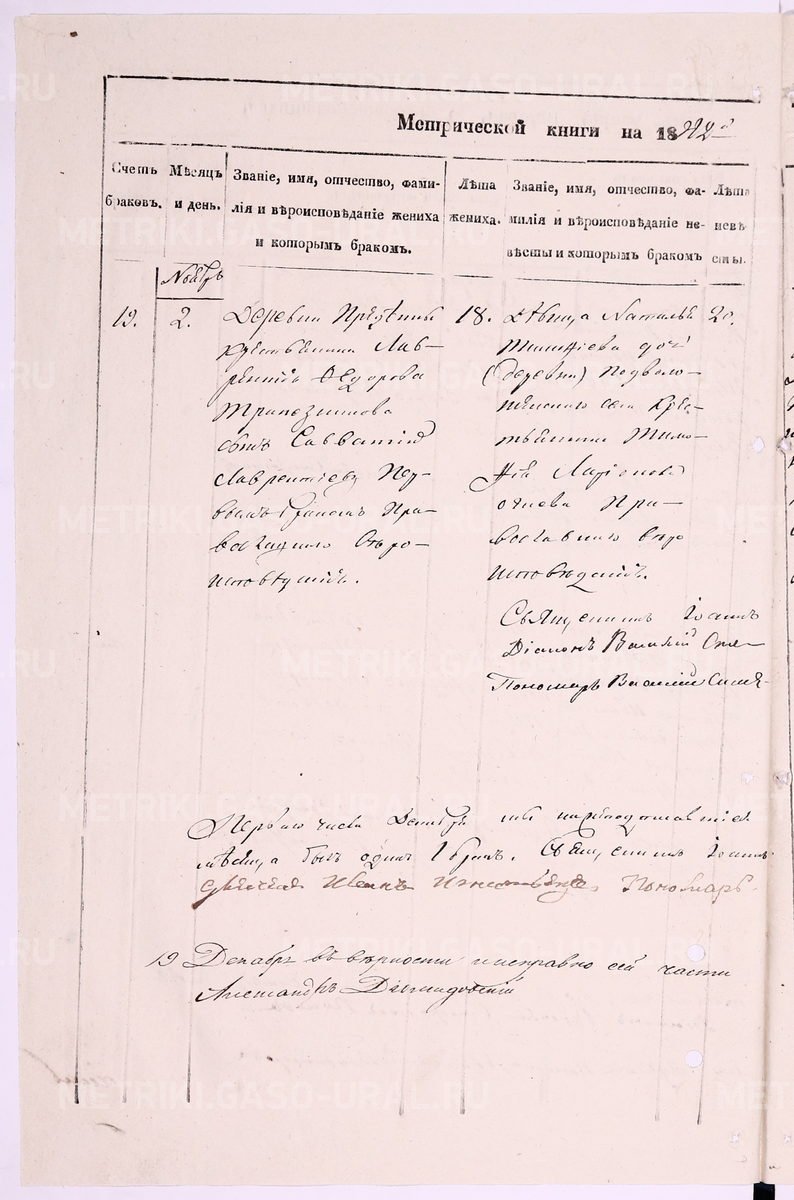 Метрической книги на 1842й
Счетъ браковъ.
Мѣсяцъ и день.
Званіе, имя, отчество, фами-
лія и вѣроисповѣданіе жениха
и которымъ бракомъ.
Лѣта жениха.
Званіе, имя, отчество, фа-
милія и вѣроисповѣданіе не-
вѣсты и которымъ бракомъ
Лѣта невѣ
сты.
Ноября
19.
2.
Деревни
крестьянина Лав-
рентія Ѳедорова
Трапезникова
сынъ Савватій
Лаврентьевъ Пер-
вымъ бракомъ Пра-
вославнаго Вѣро-
исповѣданія.
18.
дѣвица Наталья
Тимофіева дочь
(деревни) Подволо-
села Крес-
тьянина Тимо-
фія
Пра-
вославнаго вѣро
исповѣданія.
20.
Священникъ Іоаннъ
Діаконъ Василій
Пономарь Василій
Перваго числа Декабря
мѣсяца былъ одинъ бракъ. Священникъ Іоаннъ
Иванъ Пономарь
19 Декабря въ вѣрности и исправно сей части
Александръ
METRIKI.GASO-URAL.RU